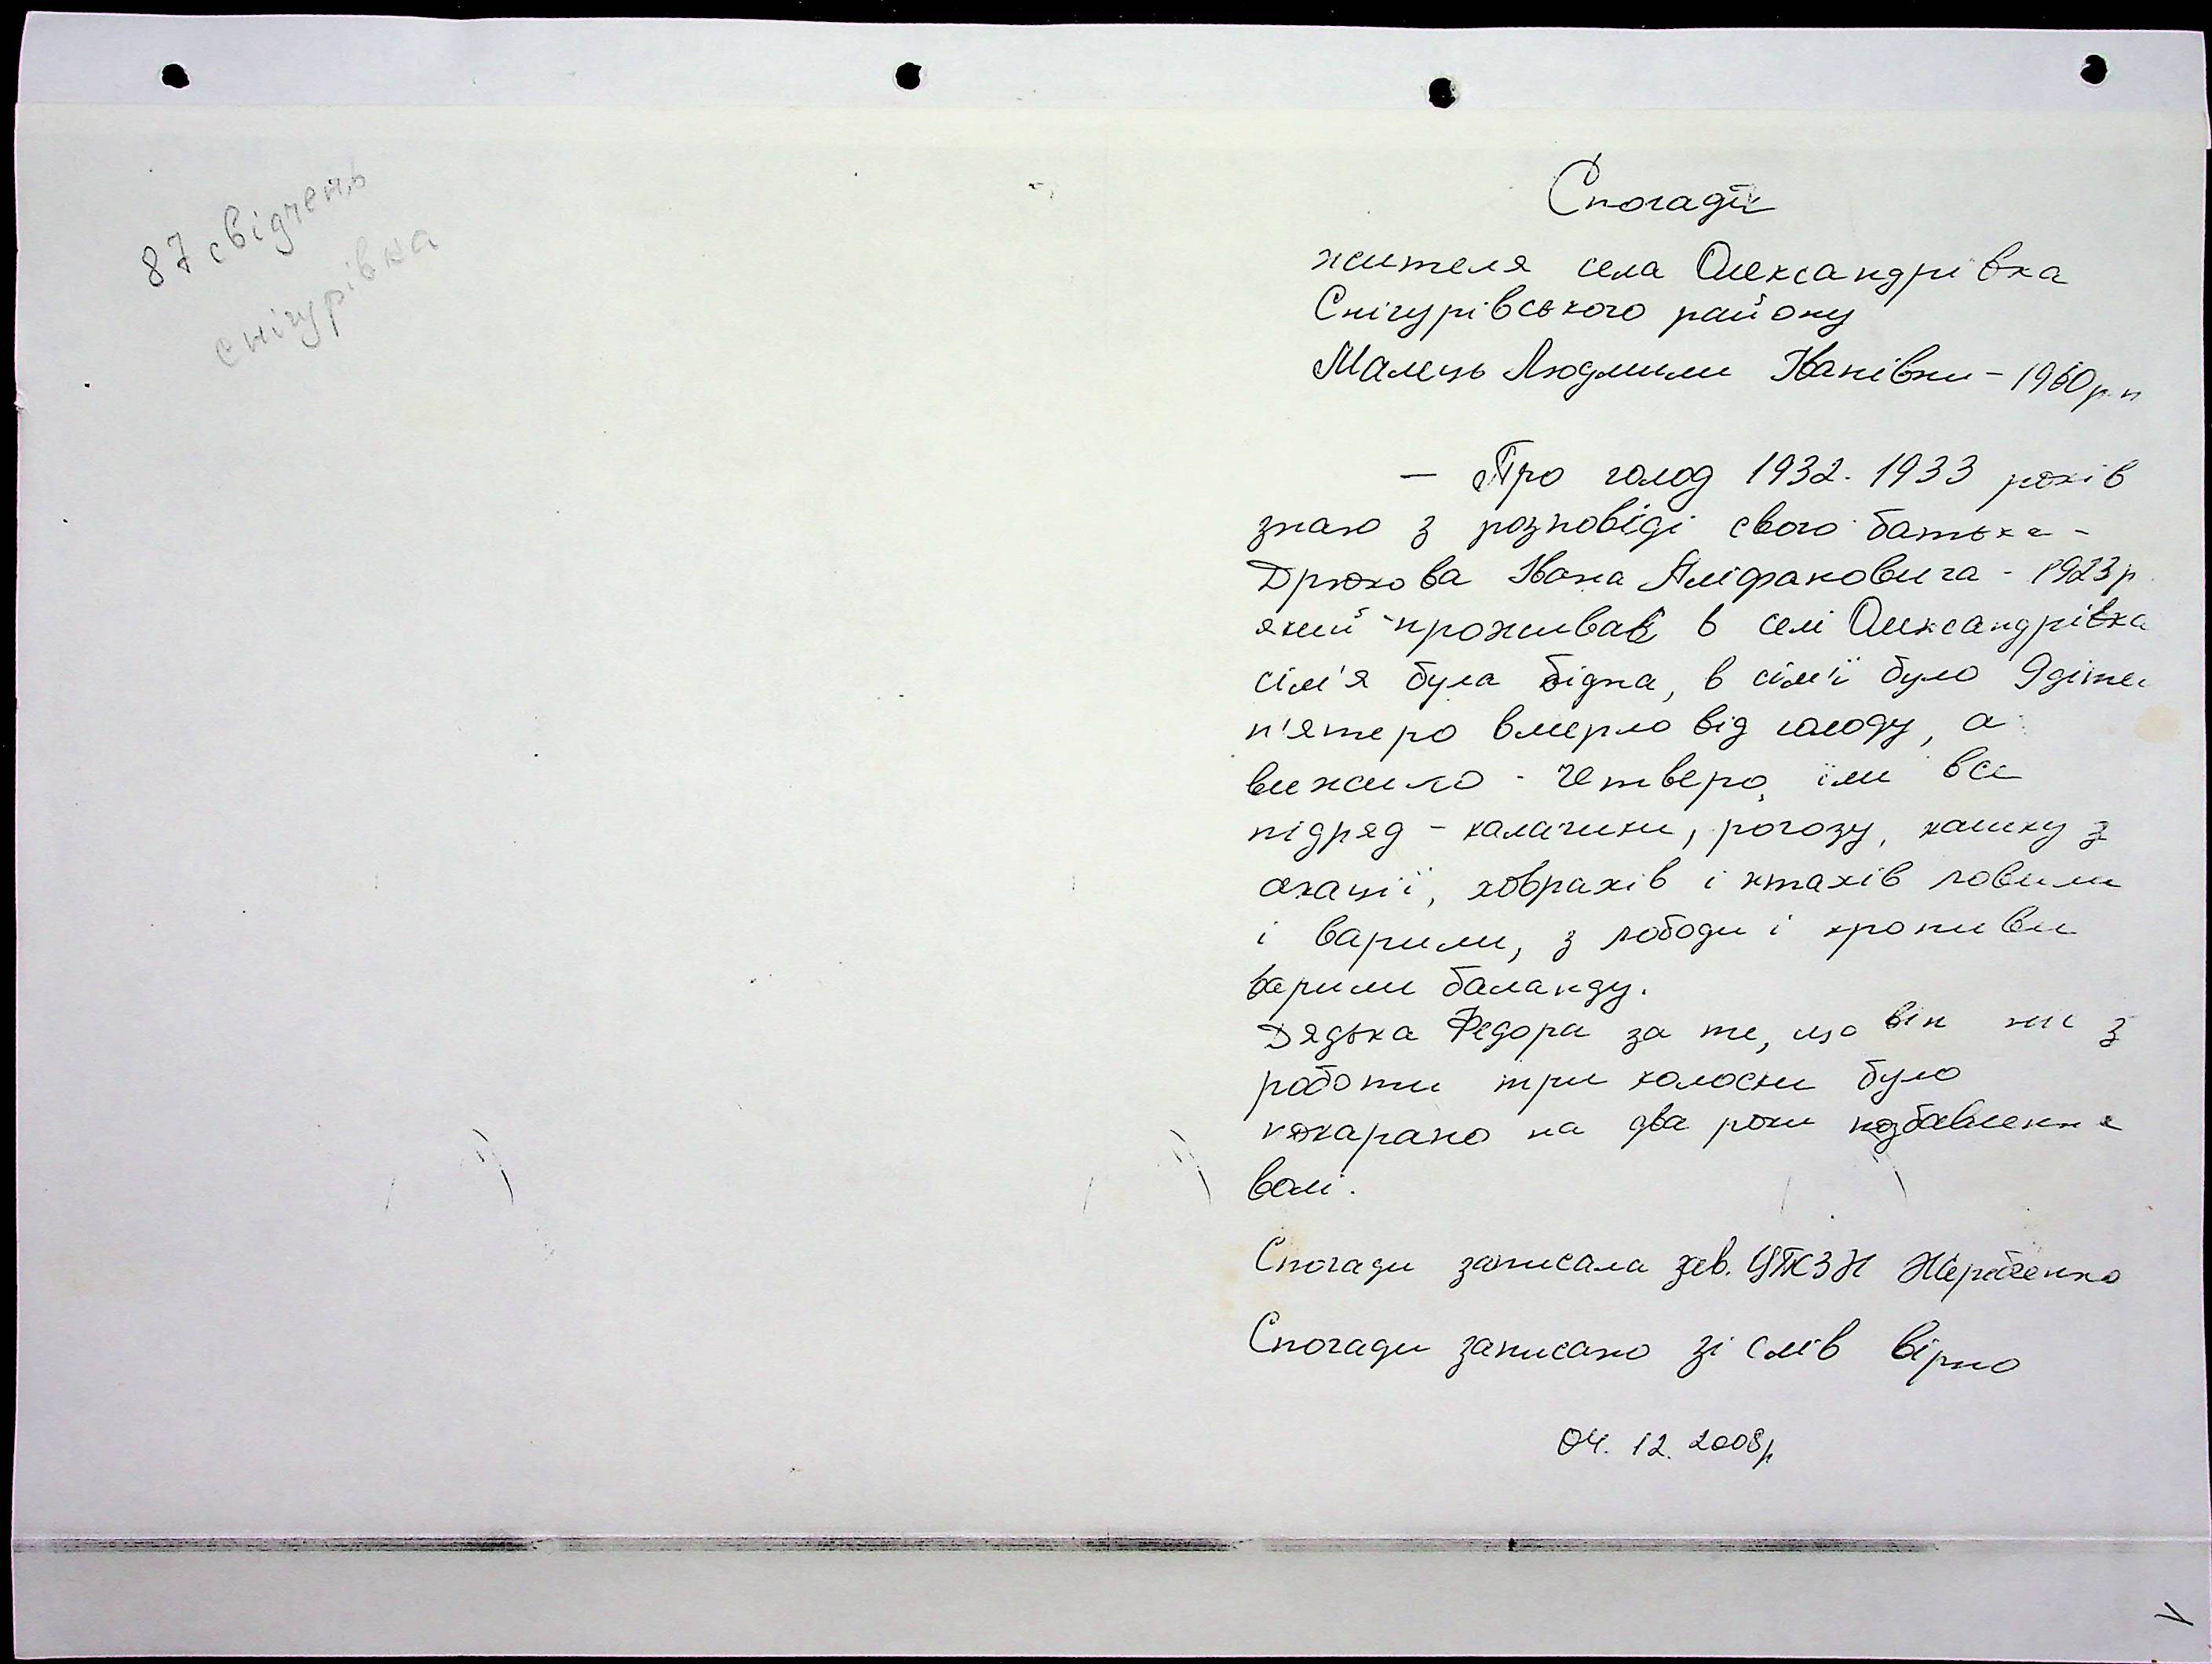 87 свідчень
снігурівка
Спогади
жителя села Олександрівка
Снігурівського району
Малець Людмили Іванівни - 1960 р.н
— Про голод 1932-1933 років
знаю з розповіді свого батька -
Дрюкова Івана Аліфановича - 1923 р.
який проживав в селі Олександрівка
сім'я була бідна, в сім'ї було 9 діте
п'ятеро вмерло від голоду, а
вижило - четверо, їли все
підряд - калачики, рогозу, кашку з
акації, ховрахів і птахів ловили
і варили, з лободи і кропиви
варили баланду.
Дядька Федора за те, що він ніс з
роботи три колоски було
покарано на два роки позбавлення
волі.
Спогади записала зав.
Спогади записано зі слів вірно
04. 12. 2008р